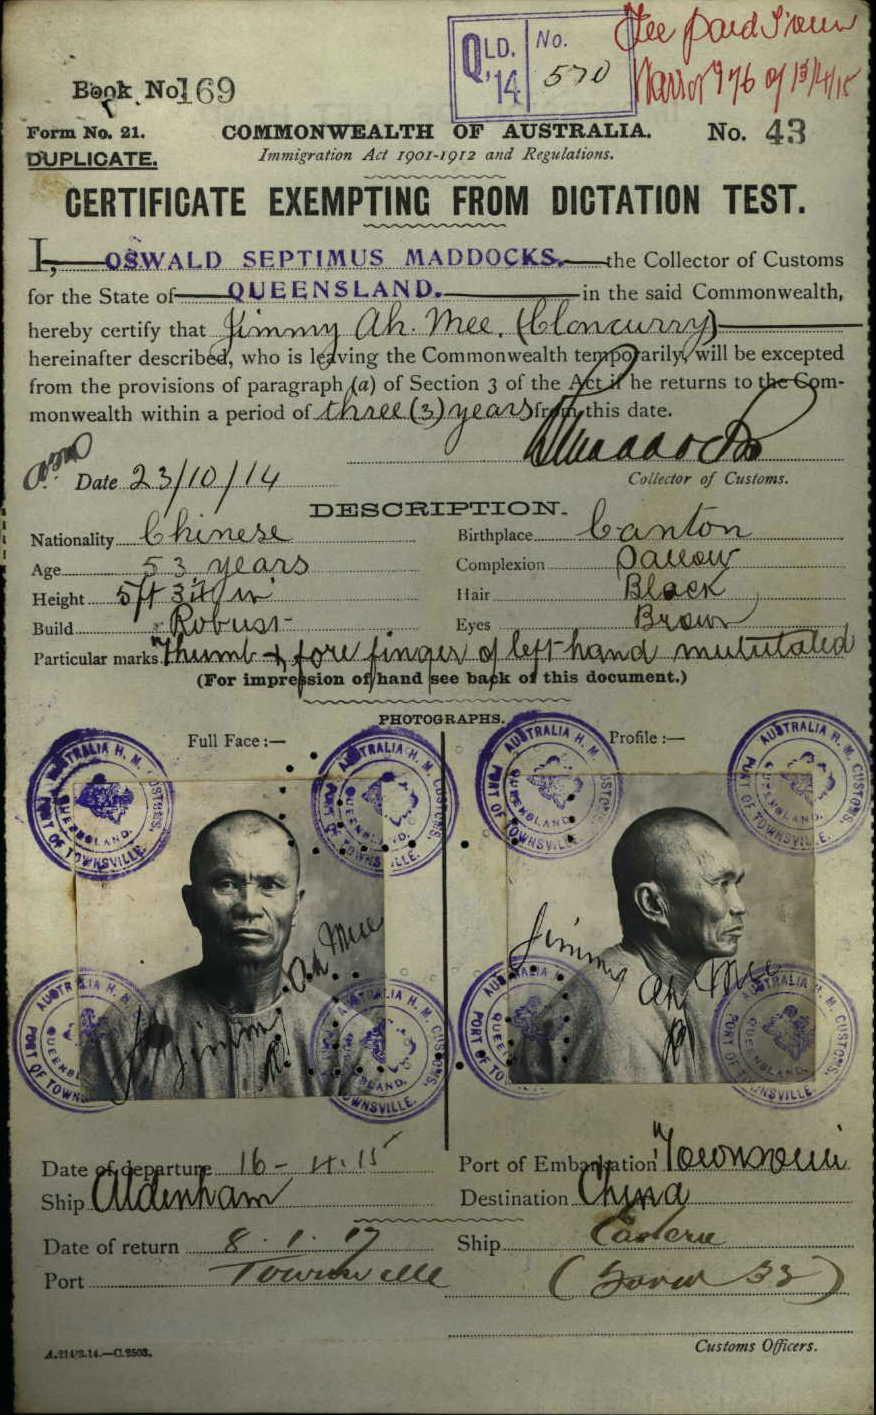 QLD. No.
'14 570
Fee paid
976 of 13/4/15
Book No 169
Form No. 21. COMMONWEALTH OF AUSTRALIA. No. 43
DUPLICATE. Immigration Act 1901-1912 and Regulations.
CERTIFICATE EXEMPTING FROM DICTATION TEST.
I, OSWALD SEPTIMUS MADDOCKS. the Collector of Customs
for the State of QUEENSLAND. in the said Commonwealth,
hereby certify that Jimmy Ah. Mee. (Cloncurry)
hereinafter described, who is leaving the Commonwealth temporarily, will be excepted
from the provisions of paragraph (a) of Section 3 of the Act if he returns to the Com-
monwealth within a period of three (3) years from this date.
Maddocks
Date 23/10/14 Collector of Customs.
DESCRIPTION.
Nationality Chinese Birthplace Canton
Age 53 years Complexion Sallow
Height 5ft in Hair Black
Build Robust Eyes Brown
Particular marks Thumb & fore finger of left hand mutilated
(For impression of hand see back of this document.)
PHOTOGRAPHS.
Full Face :— Profile :—
AUSTRALIA H. M. CUSTOMS. QUEENSLAND. PORT OF TOWNSVILLE.
AUSTRALIA H. M. CUSTOMS. QUEENSLAND. PORT OF TOWNSVILLE.
AUSTRALIA H. M. CUSTOMS. QUEENSLAND. PORT OF TOWNSVILLE.
AUSTRALIA H. M. CUSTOMS. QUEENSLAND. PORT OF TOWNSVILLE.
Jimmy Ah Mee
Jimmy Ah Mee
AUSTRALIA H. M. CUSTOMS. QUEENSLAND. PORT OF TOWNSVILLE.
AUSTRALIA H. M. CUSTOMS. QUEENSLAND. PORT OF TOWNSVILLE.
AUSTRALIA H. M. CUSTOMS. QUEENSLAND. PORT OF TOWNSVILLE.
AUSTRALIA H. M. CUSTOMS. QUEENSLAND. PORT OF TOWNSVILLE.
Date of departure 16-4.15 Port of Embarkation Townsville
Ship Aldenham Destination China
Date of return 8.1.17 Ship Eastern
Port Townsville
Customs Officers.
A.214/3.14.—C.2503.